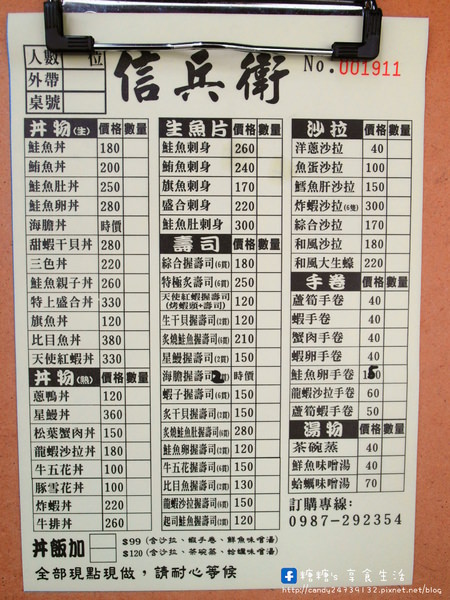 人數 位
外帶
桌號
信兵衛
No. 001911
丼物(生) 價格 數量
鮭魚丼 180
鮪魚丼 200
鮭魚肚丼 250
鮭魚卵丼 280
海膽丼 時價
甜蝦干貝丼 280
三色丼 220
鮭魚親子丼 260
特上盛合丼 330
旗魚丼 120
比目魚丼 380
天使紅蝦丼 330
丼物(熟) 價格 數量
蔥鴨丼 120
星鰻丼 360
松葉蟹肉丼 150
龍蝦沙拉丼 180
牛五花丼 100
豚雪花丼 100
炸蝦丼 220
牛排丼 260
生魚片 價格 數量
鮭魚刺身 260
鮪魚刺身 240
旗魚刺身 170
盛合刺身 220
鮭魚肚刺身 300
壽司 價格 數量
綜合握壽司(6貫) 180
特極炙壽司(6貫) 250
天使紅蝦握壽司
(烤蝦頭+壽司) 120
生干貝握壽司(2貫) 120
炙燒鮭魚握壽司(6貫) 210
星鰻握壽司(2貫) 150
海膽握壽司(2貫) 時價
蝦子握壽司(6貫) 150
炙干貝握壽司(2貫) 150
炙燒鮭魚肚握壽司(6貫) 280
鮭魚卵握壽司(2貫) 120
牛五花握壽司(6貫) 150
比目魚握壽司(2貫) 130
龍蝦沙拉握壽司(6貫) 150
起司鮭魚握壽司(2貫) 120
沙拉 價格 數量
洋蔥沙拉 40
魚蛋沙拉 100
鱈魚肝沙拉 150
炸蝦沙拉(6隻) 300
綜合沙拉 170
和風沙拉 180
和風大生蠔 220
手卷 價格 數量
蘆筍手卷 40
蝦手卷 40
蟹肉手卷 40
蝦卵手卷 40
鮭魚卵手卷
龍蝦沙拉手卷 60
蘆筍蝦手卷 50
湯物 價格 數量
茶碗蒸 40
鮮魚味噌湯 40
蛤蠣味噌湯 70
訂購專線:
0987-292354
丼飯加
$99(含沙拉、蝦手卷、鮮魚味噌湯)
$120(含沙拉、茶碗蒸、蛤蠣味噌湯)
全部現點現做,請耐心等候
糖糖's 享食生活
http://candy24734132.pixnet.net/blog